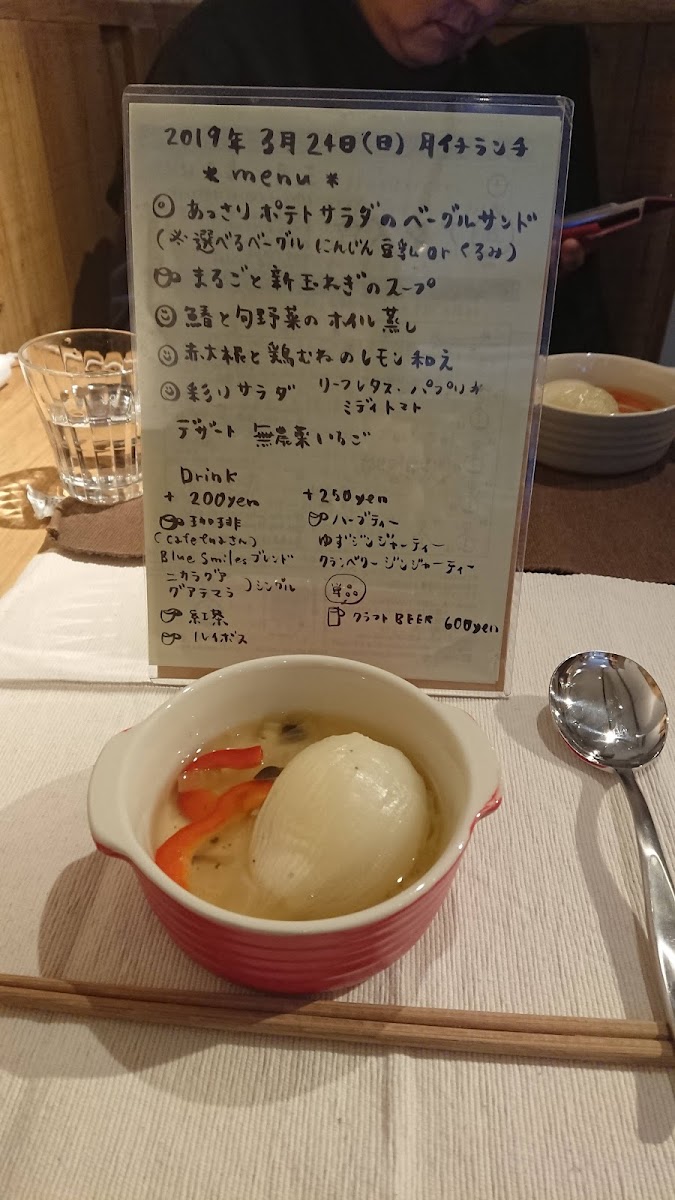 2019年 3月 24日(日) 月イチランチ
* menu *
あっさり ポテトサラダのベーグルサンド
(※選べるベーグル にんじん豆乳 or くるみ)
まるごと新玉ねぎのスープ
鯖と旬野菜の オイル蒸し
赤大根と鶏むねのレモン和え
彩りサラダ リーフレタス・パプリカ
ミディトマト
デザート 無農薬いちご
Drink
+ 200yen
珈琲
Blue Smiles ブレンド
ニカラグア
グアテマラ
)シングル
紅茶
ルイボス
+250yen
ハーブティー
ゆずジンジャーティー
クランベリージンジャーティー
クラフト BEER 600yen